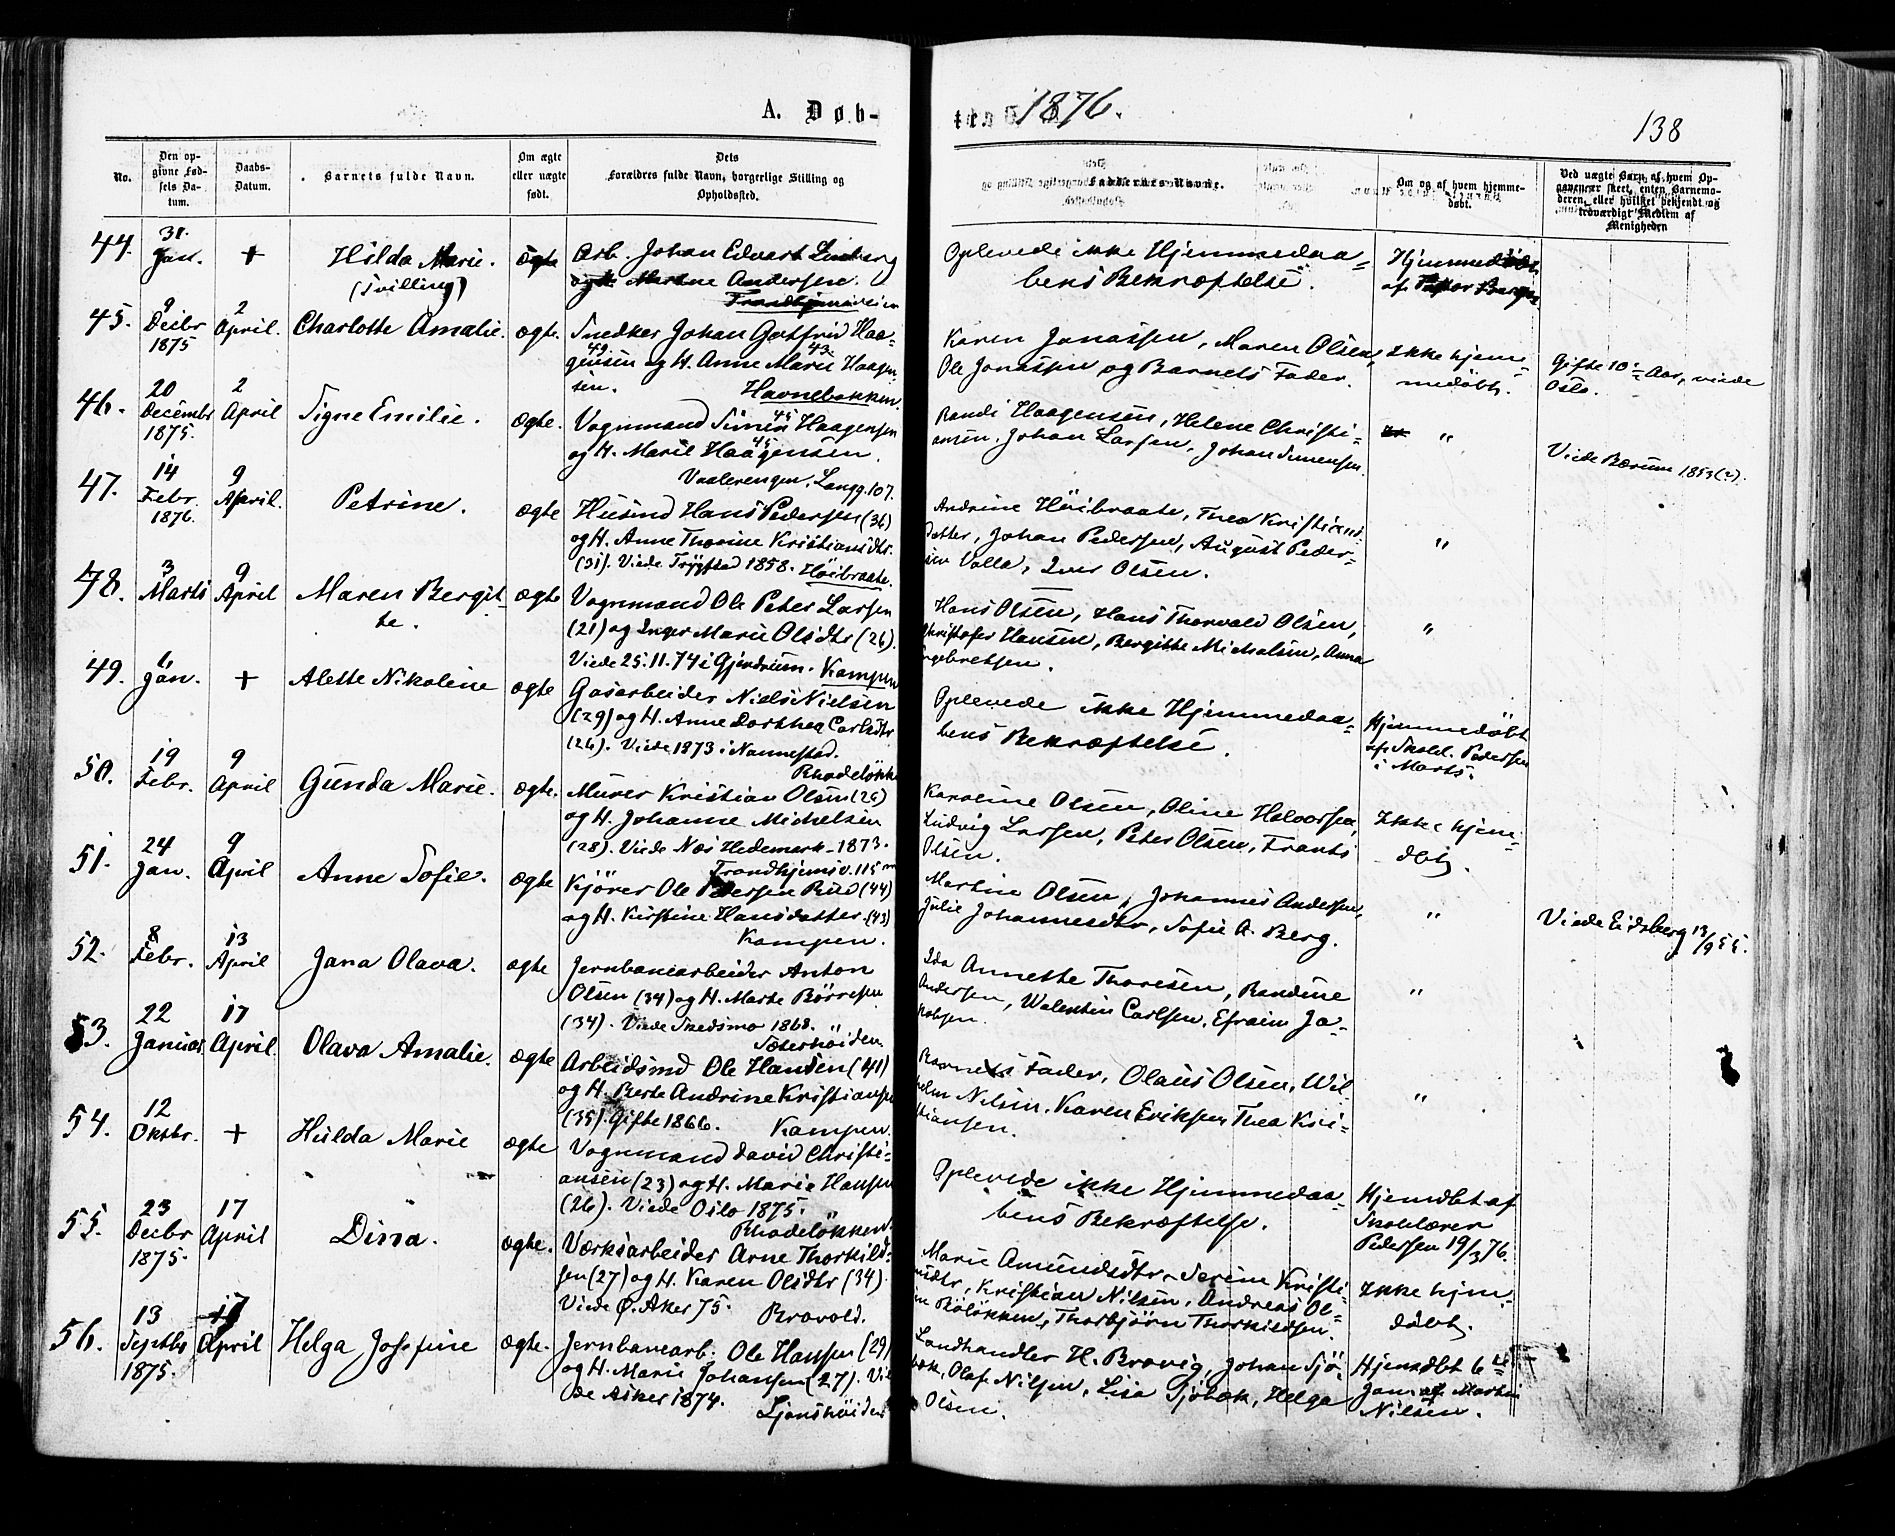 A. Døb-
ten 1876.
138
No.
Den op-
givne Fød-
sels Da-
tum.
Daabs-
Datum.
Barnets fulde Navn.
Om ægte
eller uægte
født.
Dets
Forældres fulde Navn, borgerlige Stilling og
Opholdssted.
Faddernes Navne.
Om og af hvem hjemme-
døbt.
Ved uægte Barn af hvem Op-
gaven er skeet, enten Barnemo-
deren, eller hvilket bekjendt og
troværdigt Medlem af
Menigheden
44. 31. Jan. + Hilda Marie. (Tvilling) ægte
Arb. Johan Edvart Linberg
og H. Martine Andersen.
Oplevede ikke Hjemmedaa-
bens Bekræftelse.
Hjemmedøbt
af Pastor
45. 9 Decbr 1875 2 April. Charlotte Amalie. ægte.
Snedker Johan Gotfrid Haa-
gensen 49 og H. Anne Marie 43 Haagen-
sen. Havnebakken.
Karen Jonassen, Maren Olsen,
Ole Jonassen og Barnets Fader.
Ikke hjem-
medøbt.
Gifte 10 Aar, viede
Oslo.
46. 20 Decembr 1875. 2 April Signe Emilie. ægte.
Vognmand Simen 45 Haagensen
og H. Marie 45 Haagensen.
Vaalerengen, Langg. 107.
Randi Haagensen, Helene Christi-
ansen, Johan Larsen, Johan Simensen.
"
Viede Bærum 1853(?).
47. 14 Febr. 1876. 9 April. Petrine. ægte
Husmd Hans Pedersen (36)
og H. Anne Thorine Kristiansdtr.
(31). Viede Trygstad 1858. Høibraate.
Andrine Høibraate, Thea Kristians
Datter, Johan Pedersen, August Peder-
sen Valla, Iver Olsen.
"
48. 3 Marts 9 April Maren Bergit-
te. ægte
Vognmand Ole Peter Larsen
(21) og Inger Marie Olsdtr (26).
Viede 25.11.74 i Gjerdrum. Kampen
Hans Olsen, Hans Thorvald Olsen,
Christofer Hansen, Bergitte Michalsen, Anna
Ingebretsen.
"
49. Jan. + Alette Nikoline ægte
Gasarbeider Niels Nielsen
(29) og H. Anne Dorthea Carlsdtr
(26). Viede 1873 i Nannestad.
Rhodeløkke
Oplevede ikke Hjemmedaa-
bens Bekræftelse.
Hjemmedøbt
af Skoel. Pedersen
i Marts.
50. 19 Febr. 9 April Gunda Marie. ægte.
Murer Kristian Olsen (26)
og H. Johanne Michelsen
(28). Viede Næs Hedemark 1873.
Trondhjemsv. 115
Karoline Olsen, Oline Halvorsen,
Ludvig Larsen, Peter Olsen, Frants
Olsen.
Ikke hjem-
dbt.
51. 24 Jan. 9 April Anne Sofie. ægte
Kjører Ole Pedersen Rud (44)
og H. Kirstine Hansdatter (43)
Kampen.
Martin Olsen, Johannes Andersen,
Julie Johannesdtr, Sofie A. Berg.
"
Viede Eidsberg 13/9 55.
52. 8 Febr. 13 April Jana Olava. ægte
Jernbanearbeider Anton
Olsen (34) og H. Marte Børresen
(34). Viede Skedsmo 1868.
Sæterhøiden
Ida Annette Thoresen, Randine
Andersen, Walentin Carlsen, Efraim Ja-
kobsen.
"
53. 22 Januar. 17 April. Olava Amalie. ægte
Arbeidsmd Ole Hansen (41)
og H. Berte Andrine Kristiansen
(35). Gifte 1866. Kampen.
Barnets Fader, Olaus Olsen, Wil-
helm Nilsen, Karen Eriksen, Thea Kri-
stiansen.
"
54. 12 Oktbr. + Hulda Marie ægte
Vognmand David Christi-
ansen (23) og H. Marie Hansen
(26). Viede Oslo 1875.
Rhodeløkken
Oplevede ikke Hjemmedaa-
bens Bekræftelse.
Hjemdbt af
Skolelærer
Pedersen 19/3 76.
55. 23 Decbr 1875. 17 April Dina. ægte.
Værksarbeider Arne Thorkild-
sen (27) og H. Karen Olsdtr (34).
Viede Ø. Aker 75. Brovold.
Marie Amundsdtr, Serine Kristi-
ansdtr, Kristian Nilsen, Andreas Ol-
sen Bøløkken, Thorbjörn Thorkildsen.
Ikke hjem-
døbt.
56. 13 Septbr 1875. 17 April Helga Josefine ægte.
Jernbanearb. Ole Hansen (29)
og H. Marie Johansen (27). Vie-
de Asker 1874. Ljanshøiden
Landhandler H. Brovig, Johan Sjø-
bæk, Olaf Nilsen, Lisa Sjøbæk, Helga
Olsen.
Hjemdbt 6te
Jan. af Martin
Nilsen.